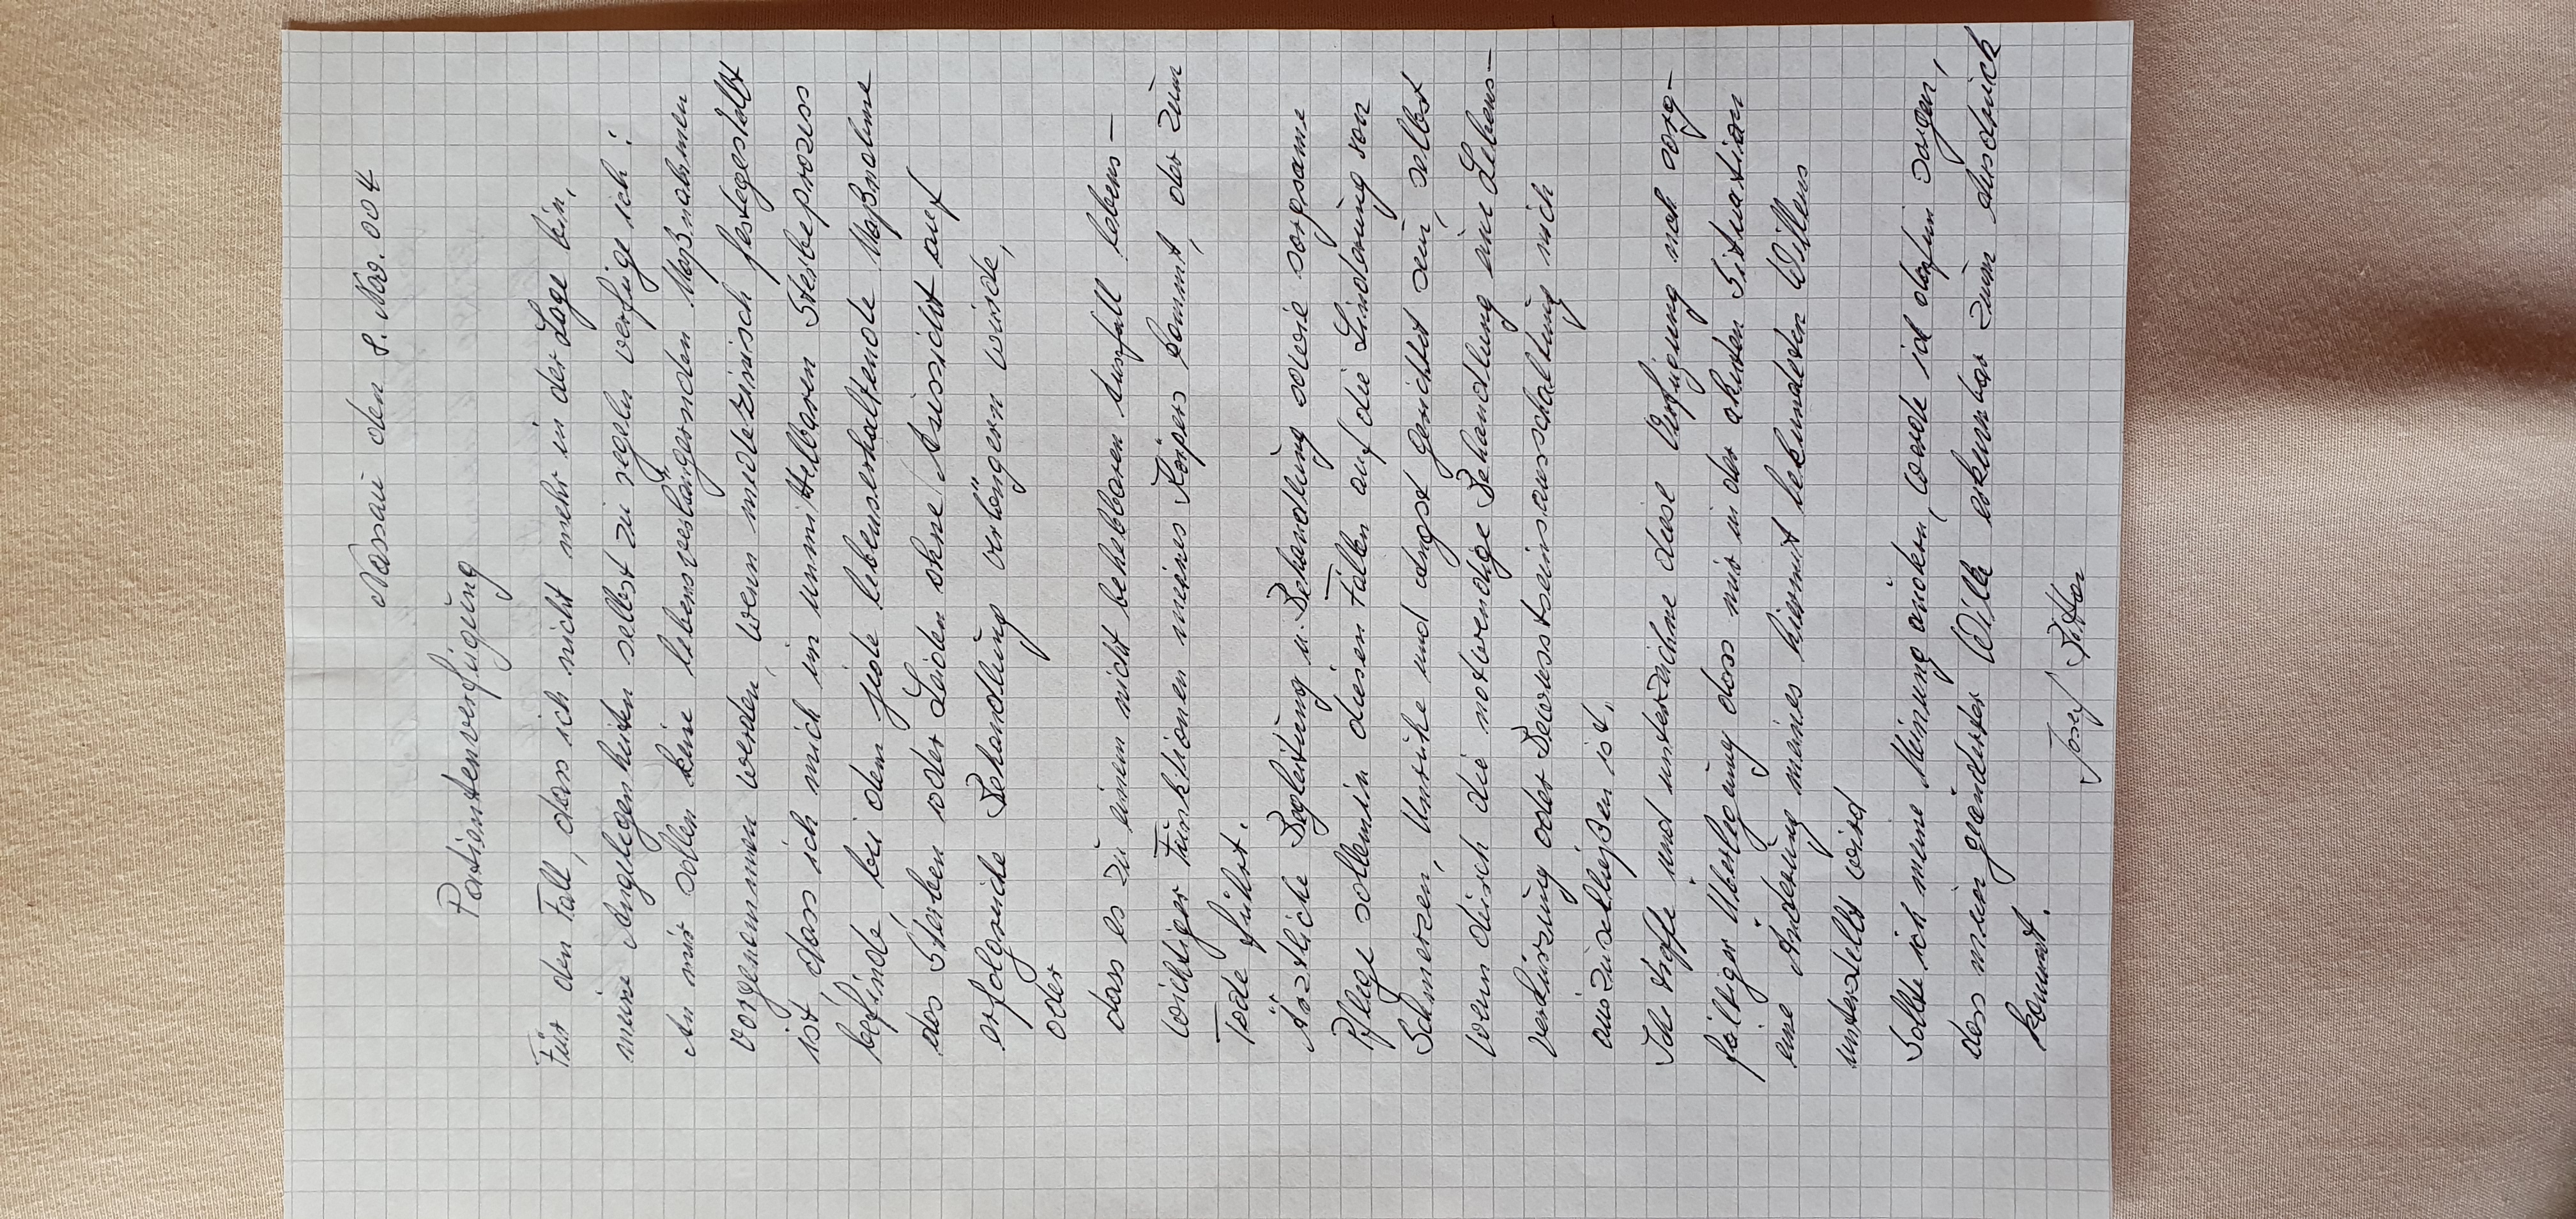 Nassau den 8. Nov. 004
Patientenverfügung
Für den Fall, dass ich nicht mehr in der Lage bin,
meine Angelegenheiten selbst zu regeln verfüge ich:
An mir sollen keine lebensverlängernden Maßnahmen
vorgenommen werden, wenn medezinisch festgestellt
ist, dass ich mich im unmittelbaren Sterbeprozess
befinde, bei dem jede lebenserhaltende Maßnahme
das Sterben oder Leiden ohne Aussicht auf
erfolgreiche Behandlung verlängern würde,
oder
dass es zu einem nicht behebbaren Ausfall lebens-
wichtiger Funktionen meines Körpers kommt, der zum
Tode führt.
Ärztliche Begleitung u. Behandlung sowie sorgsame
Pflege sollen in diesen Fällen auf die Linderung von
Schmerzen, Unruhe und Angst gerichtet sein, selbst
wenn durch die notwendige Behandlung eine Lebens-
verkürzung oder Bewusstseinsausschaltung nich
auszuschließen ist.
Ich treffe und unterzeichne diese Verfügung nach sorg-
fältiger Überlegung dass mir in der akuten Situation
eine Änderung meines hiermit bekundeten Willens
unterstellt wird
Sollte ich meine Meinung ändern, werde ich dafür sorgen,
dass mein geänderter Wille erkennbar zum Ausdruck
kommt.
Josef